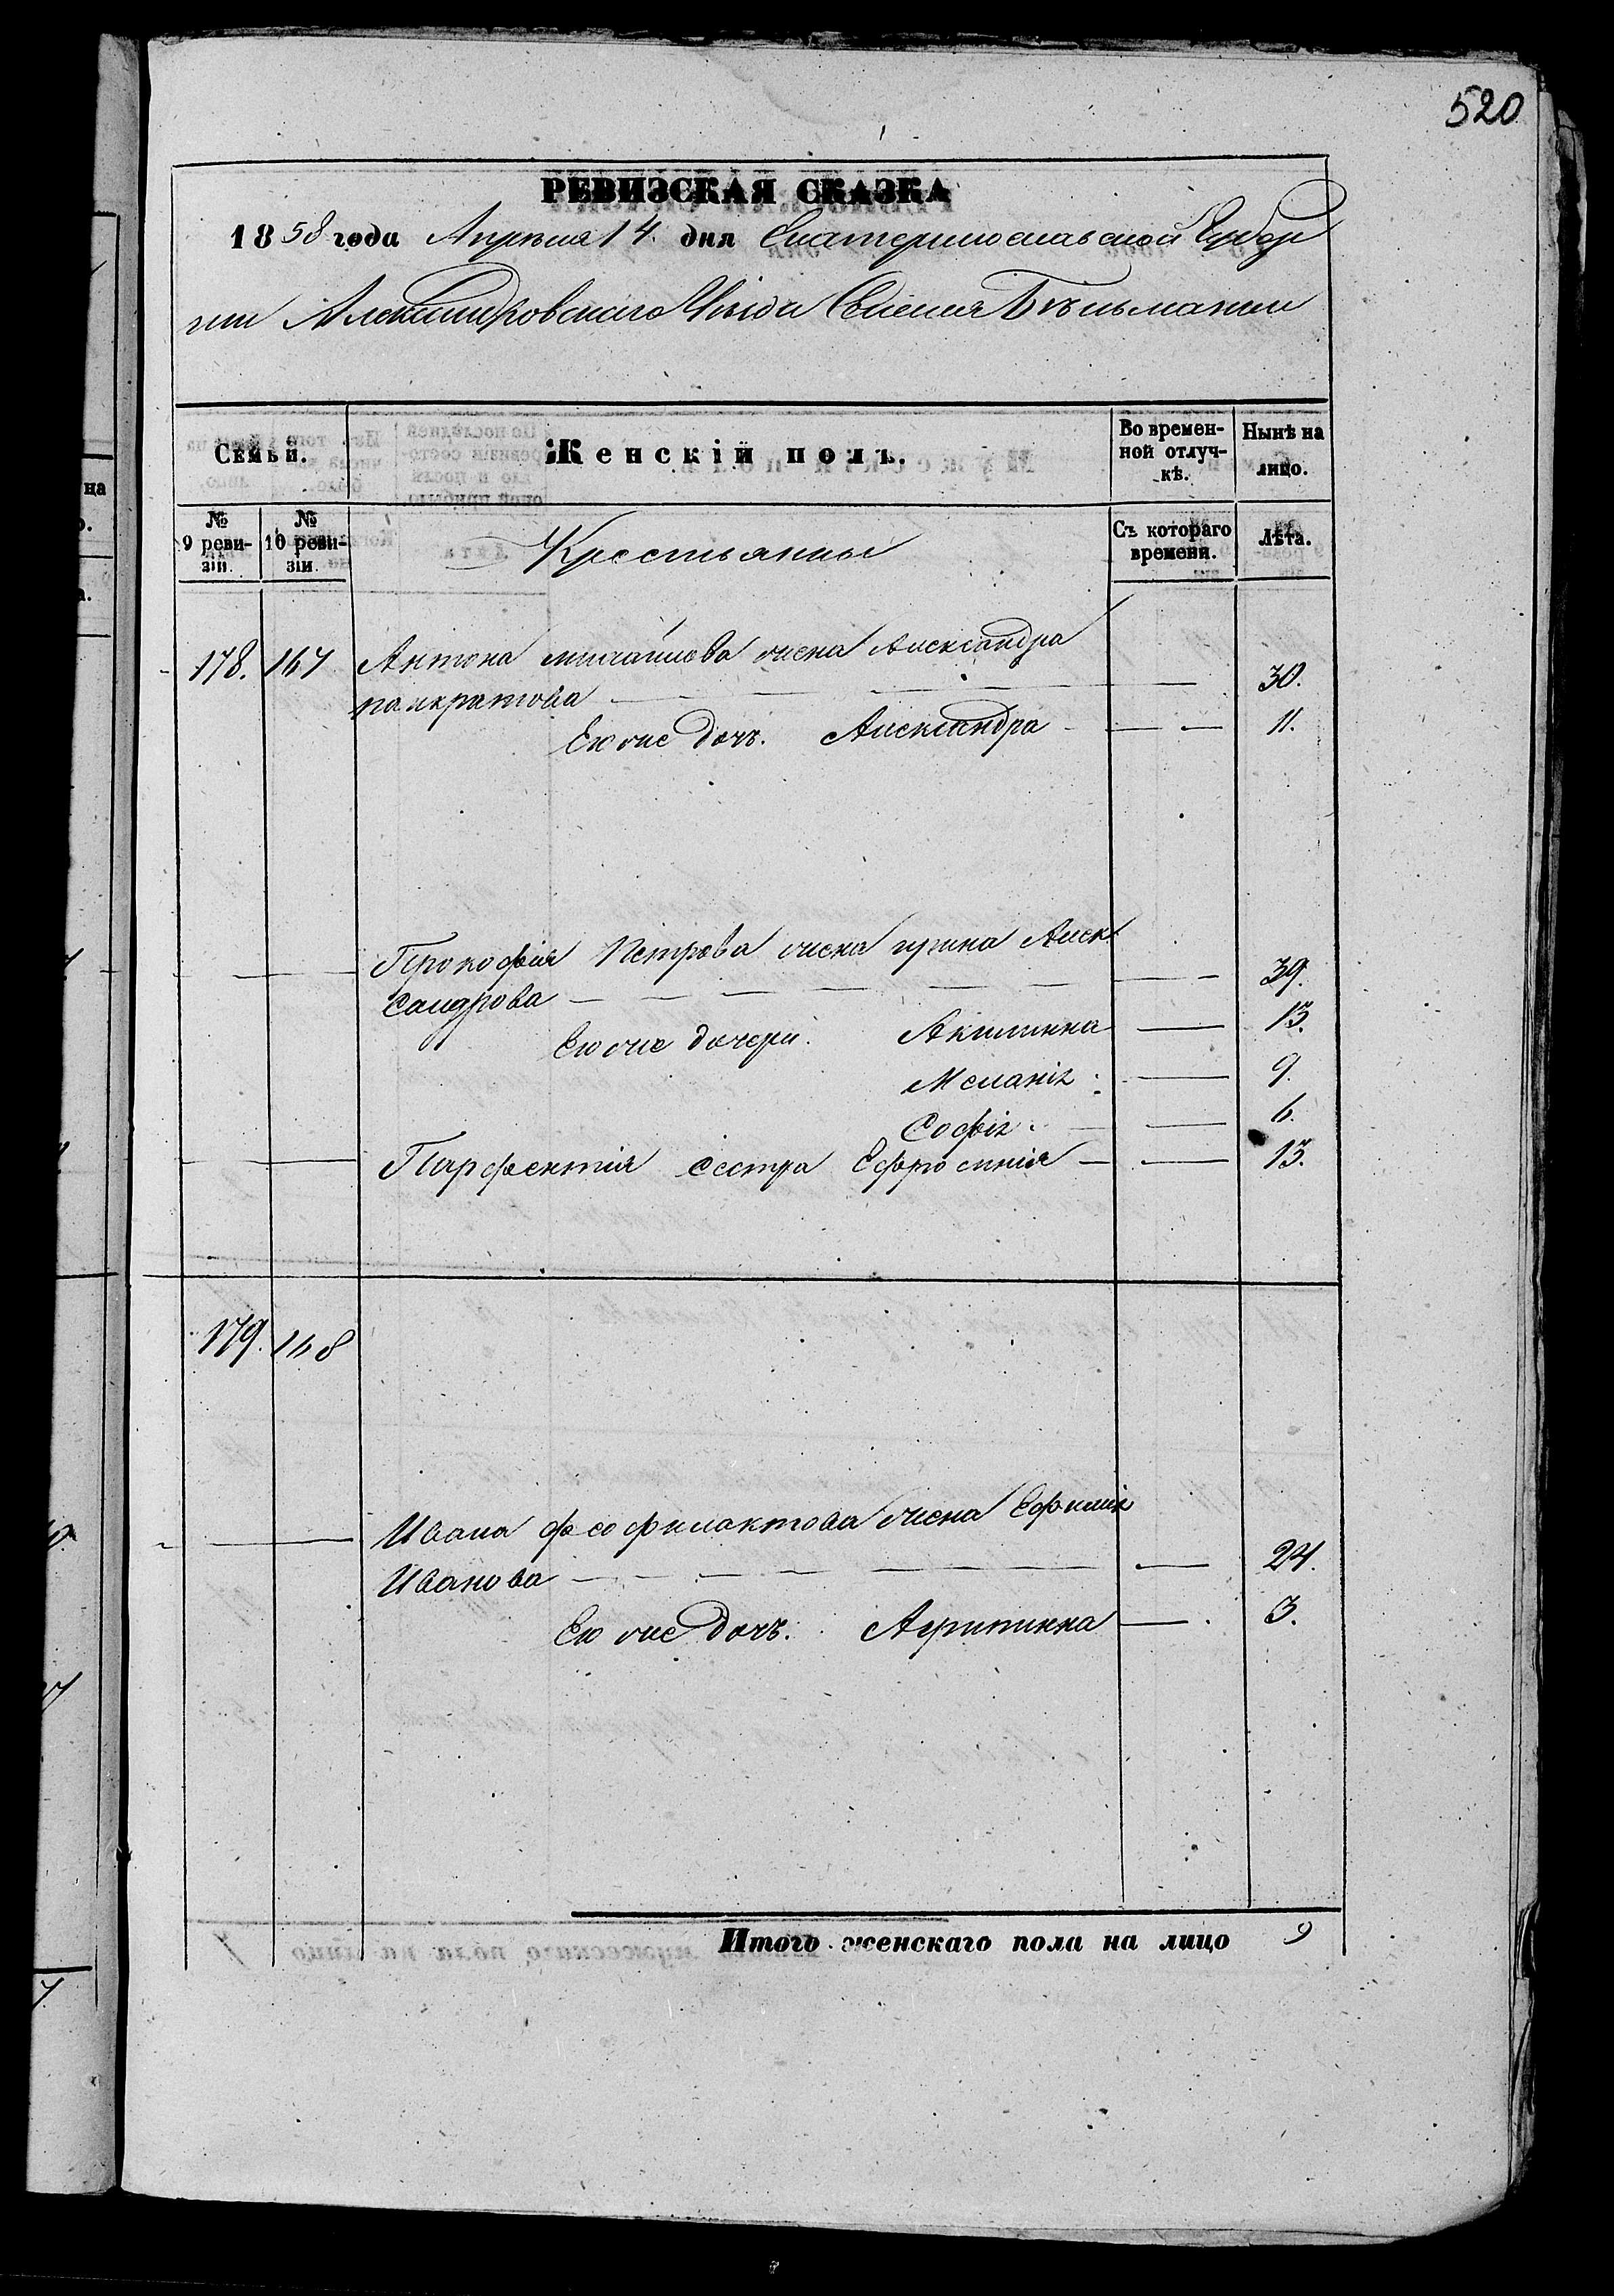 520
РЕВИЗСКАЯ СКАЗКА
1858 года Апреля 14. дня Екатеринославской Губер
нии Александровского Уезда Селения Бельманки
Семьи.
Женскій полъ.
Во времен-
ной отлуч-
кѣ.
Нынѣ на
лицо.
№
9 реви-
зіи.
№
10 реви-
зіи.
Крестьянны
Съ котораго
времени.
Лѣта.
178. 167 Антона михайлова жена Александра
панкратова — — — 30.
Ею же дочь. Александра — — 11.
Прокофія Петрова жена ирина Алек
сандрова — — — — 39.
Ею же дочери. Акилинна — 13.
Меланія — 9.
Софія — 6.
Парфентія сестра Ефросинія — — 13.
179. 168
Ивана феофилактова жена Ефимія
Иванова — — — — 24.
Ею же дочь. Агрипинна — 3.
Итого женскаго пола на лицо 9